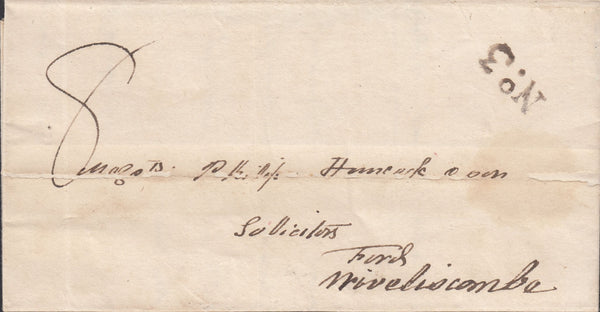 No. 3
8
Messrs. Philip Hancock & Son
Sollicitors
Ford
Wiveliscombe